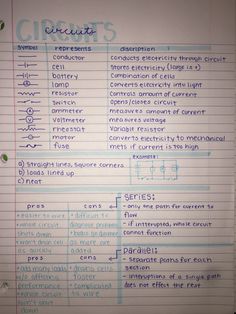 CIRCUITS
circuits
symbol represents discription
conductor conducts electricity through circuit
cell stores electricity (large is +)
battery combination of cells
lamp converts electricity into light
resistor controls amount of current
switch opens/closes circuit
ammeter measures amount of current
voltmeter measures voltage
rheostat variable resistor
motor converts electricity to mechanical
fuse melts if current is too high
example:
a) straight lines, square corners
b) loads lined up
c) neat
series:
- only one path for current to
flow
- if interrupted, whole circuit
cannot function
parallel:
- separate paths for each
section
- interruptions of a single path
does not effect the rest
pros cons
+ easier to wire + difficult to
+ whole circuit diagnose problem
shuts down
+ won't drain cell as more are
as quickly added
pros cons
+ add many loads + drains cells
w/o affecting faster
preformance + complicated
+ whole circuit to wire
won't shut
down